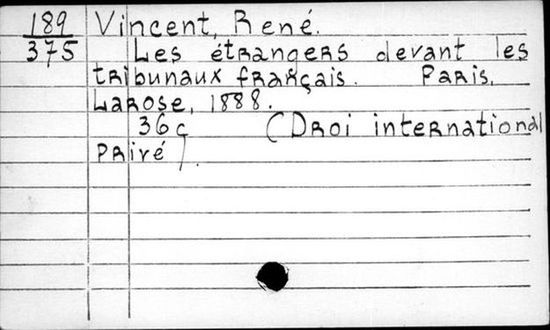 189 Vincent, René.
375 Les étrangers devant les
tribunaux français. Paris,
Larose, 1888.
36c (Droi international
privé).